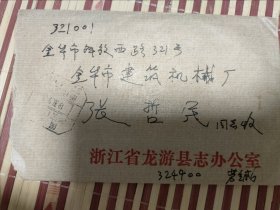 321001
金华市解放西路321号
金华市建筑机械厂
张哲民 同志收
浙江省龙游县志办公室
324400